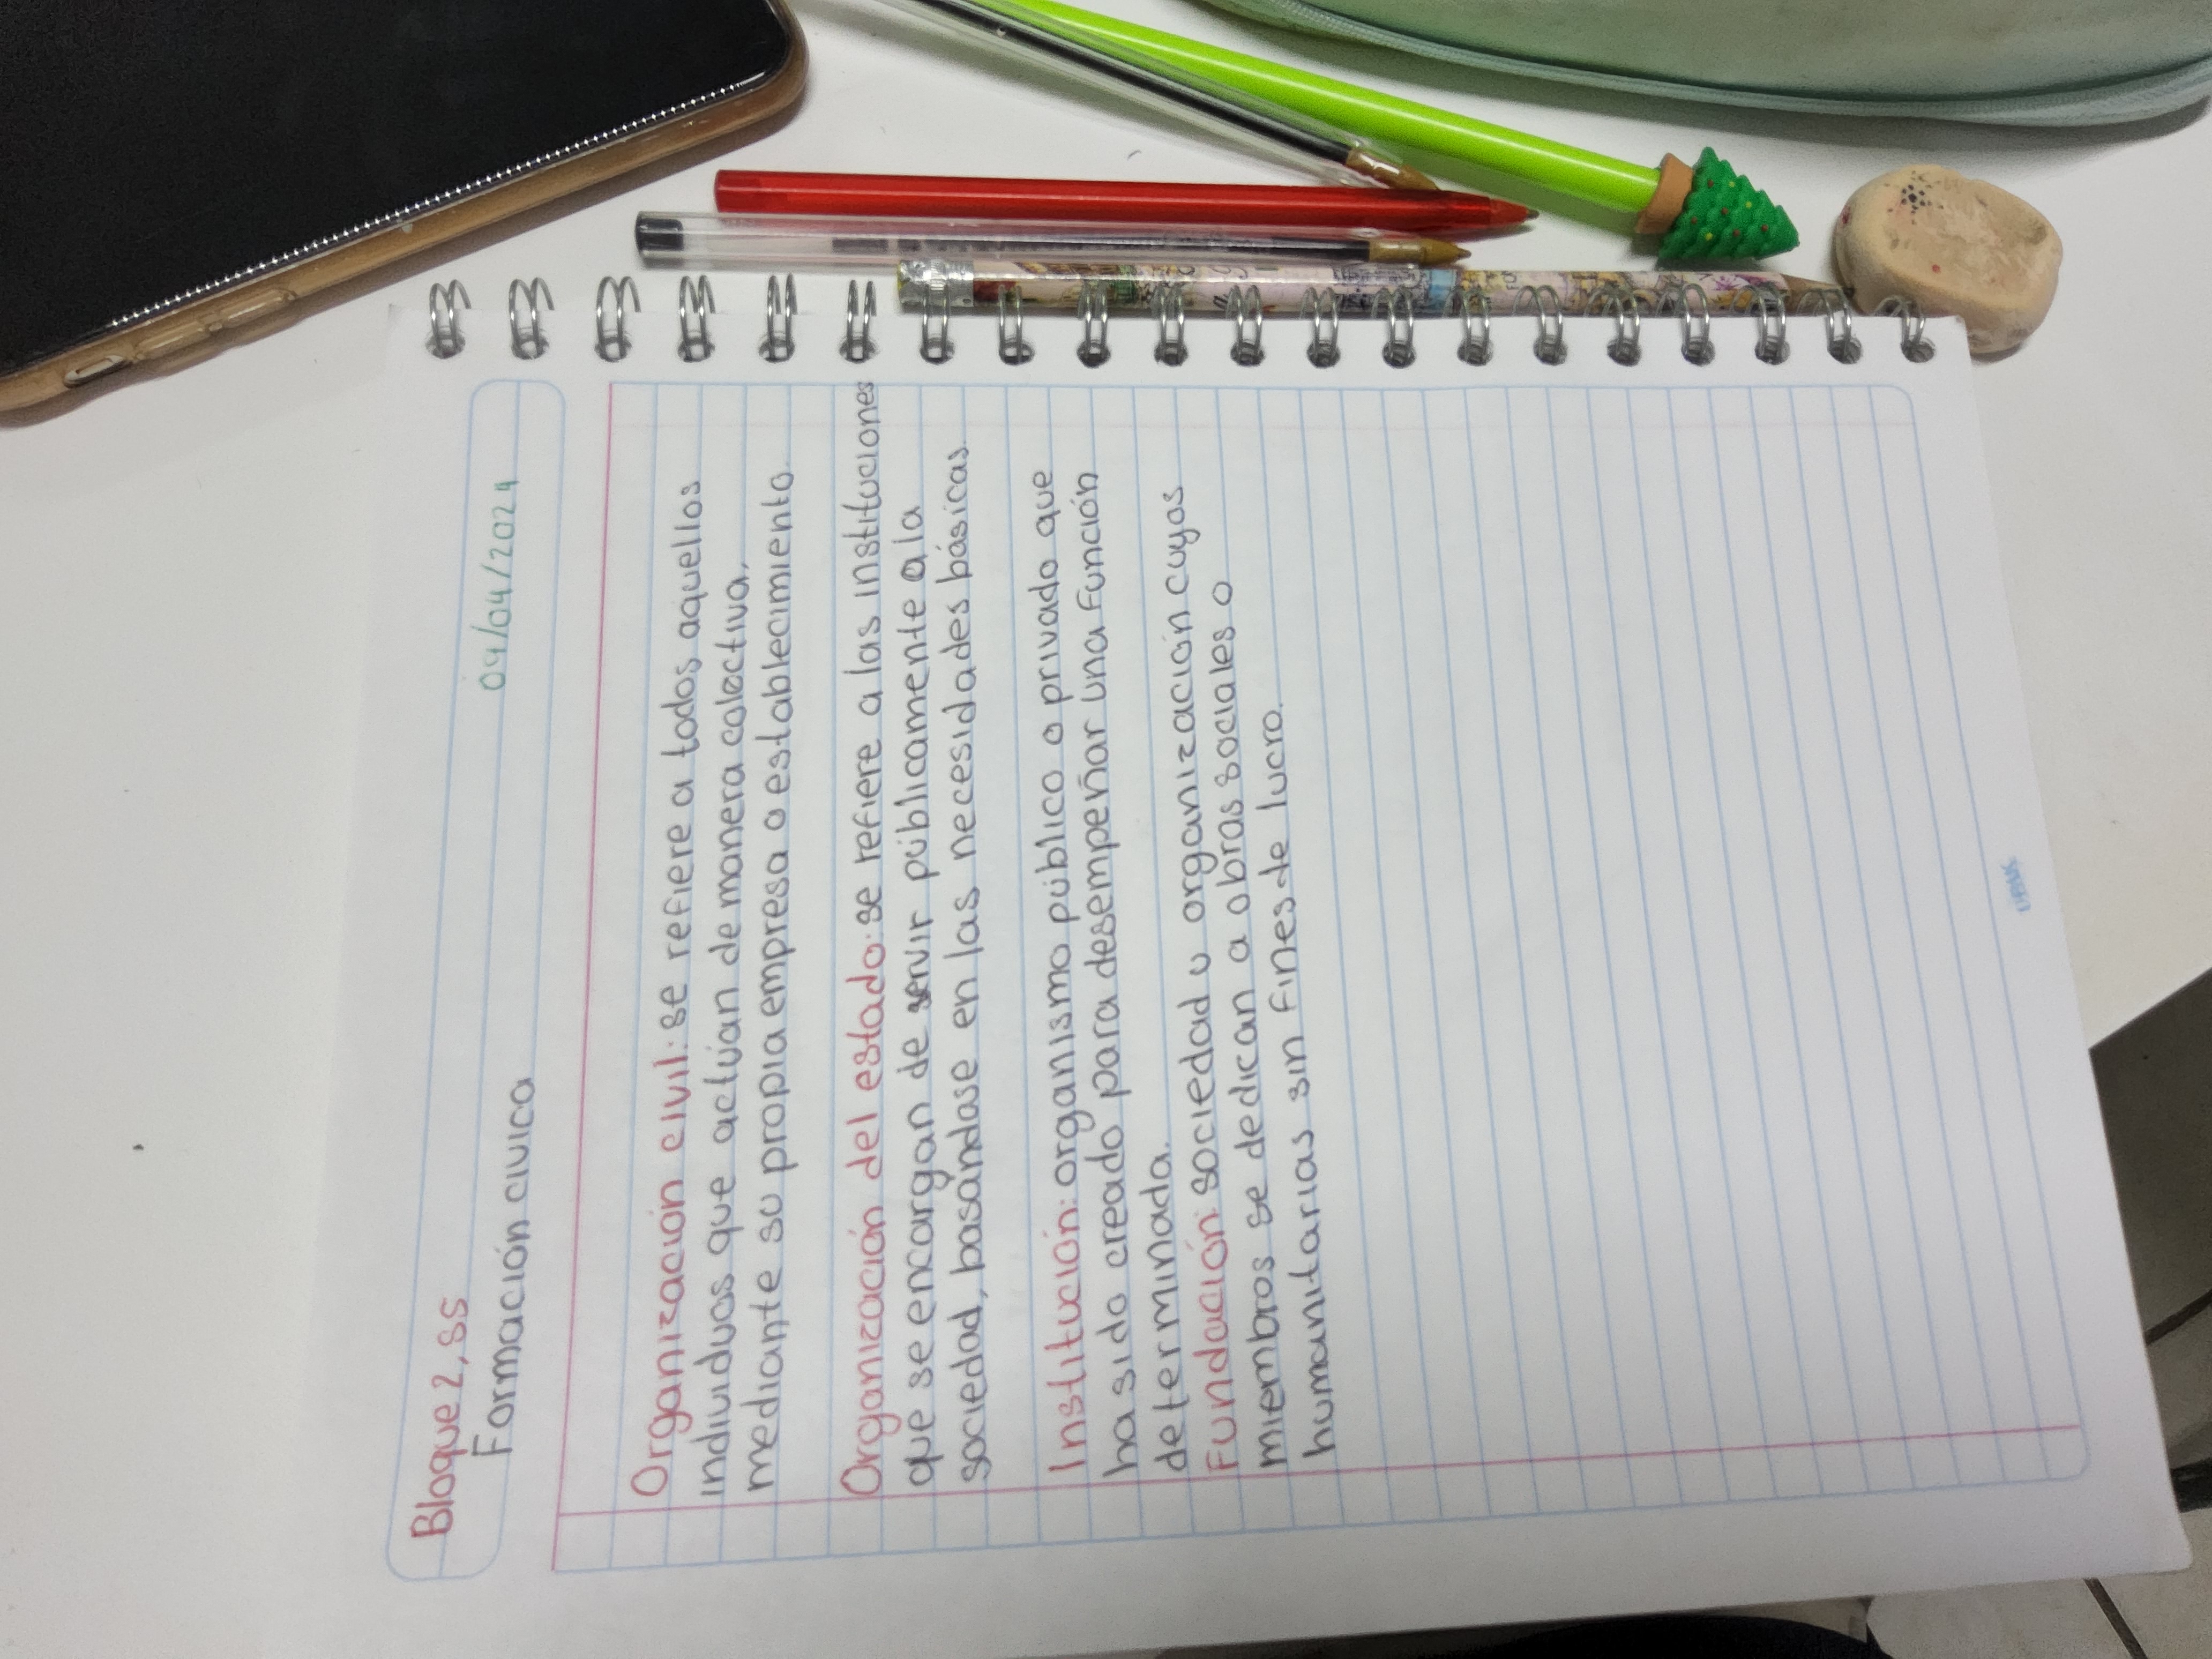 Bloque 2, SS
Formación civica
09/04/2024
Organización civil: se refiere a todos aquellos
individuos que actúan de manera colectiva,
mediante su propia empresa o establecimiento.
Organización del estado: se refiere a las instituciones
que se encargan de servir públicamente a la
sociedad, basándose en las necesidades básicas.
Institución: organismo público o privado que
ha sido creado para desempeñar una función
determinada.
Fundación: sociedad u organización cuyos
miembros se dedican a obras sociales o
humanitarias sin fines de lucro.